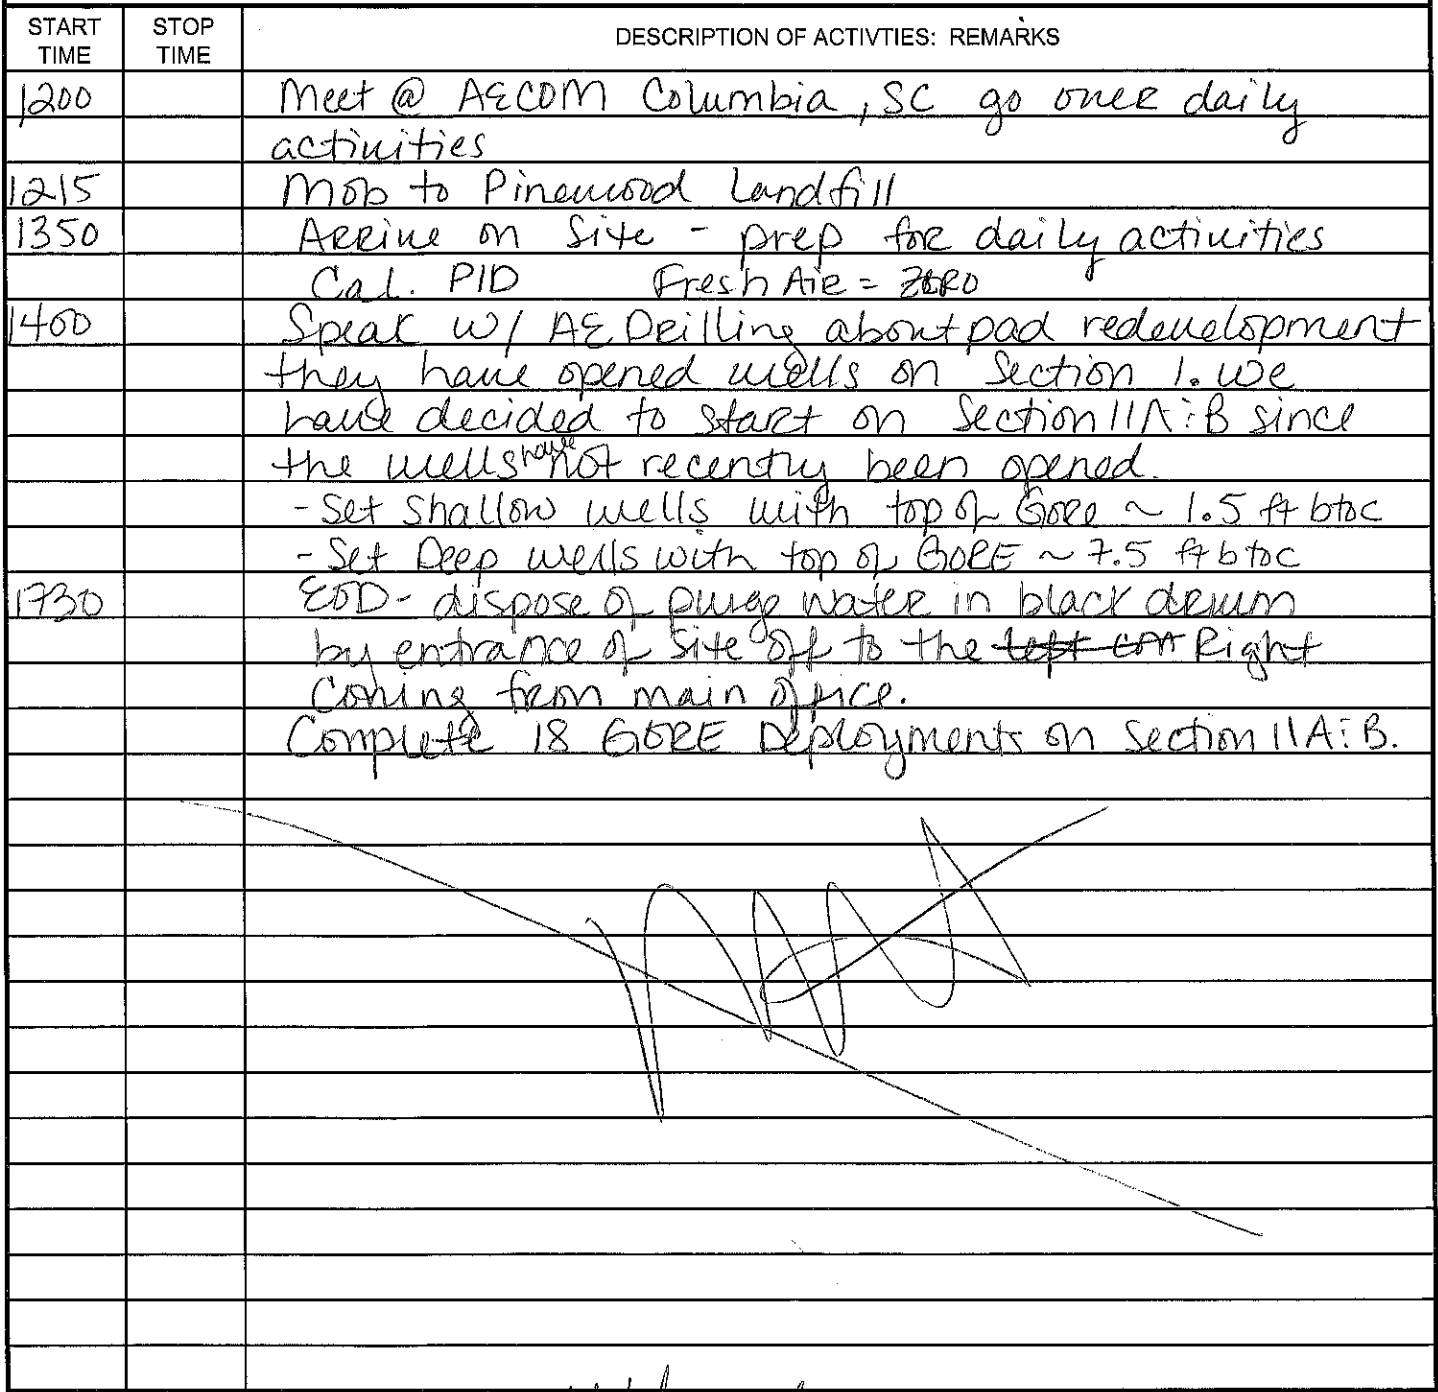 START TIME STOP TIME DESCRIPTION OF ACTIVTIES: REMARKS
1200 Meet @ AECOM Columbia, SC go over daily
activities
1215 Mob to Pinewood Landfill
1350 Arrive on Site - prep for daily activities
Cal. PID Fresh Air = ZERO
1400 Speak w/ AE Drilling about pad redevelopment
they have opened wells on Section 1. we
have decided to start on Section IIA & B since
the wells have not recently been opened.
- Set Shallow wells with top of Gore ~ 1.5 ft btoc
- Set Deep wells with top of GORE ~ 7.5 ft btoc
1730 EOD - dispose of purge water in black drum
by entrance of site off to the left Right
Coming from main office.
Complete 18 GORE Deployments on Section IIA & B.